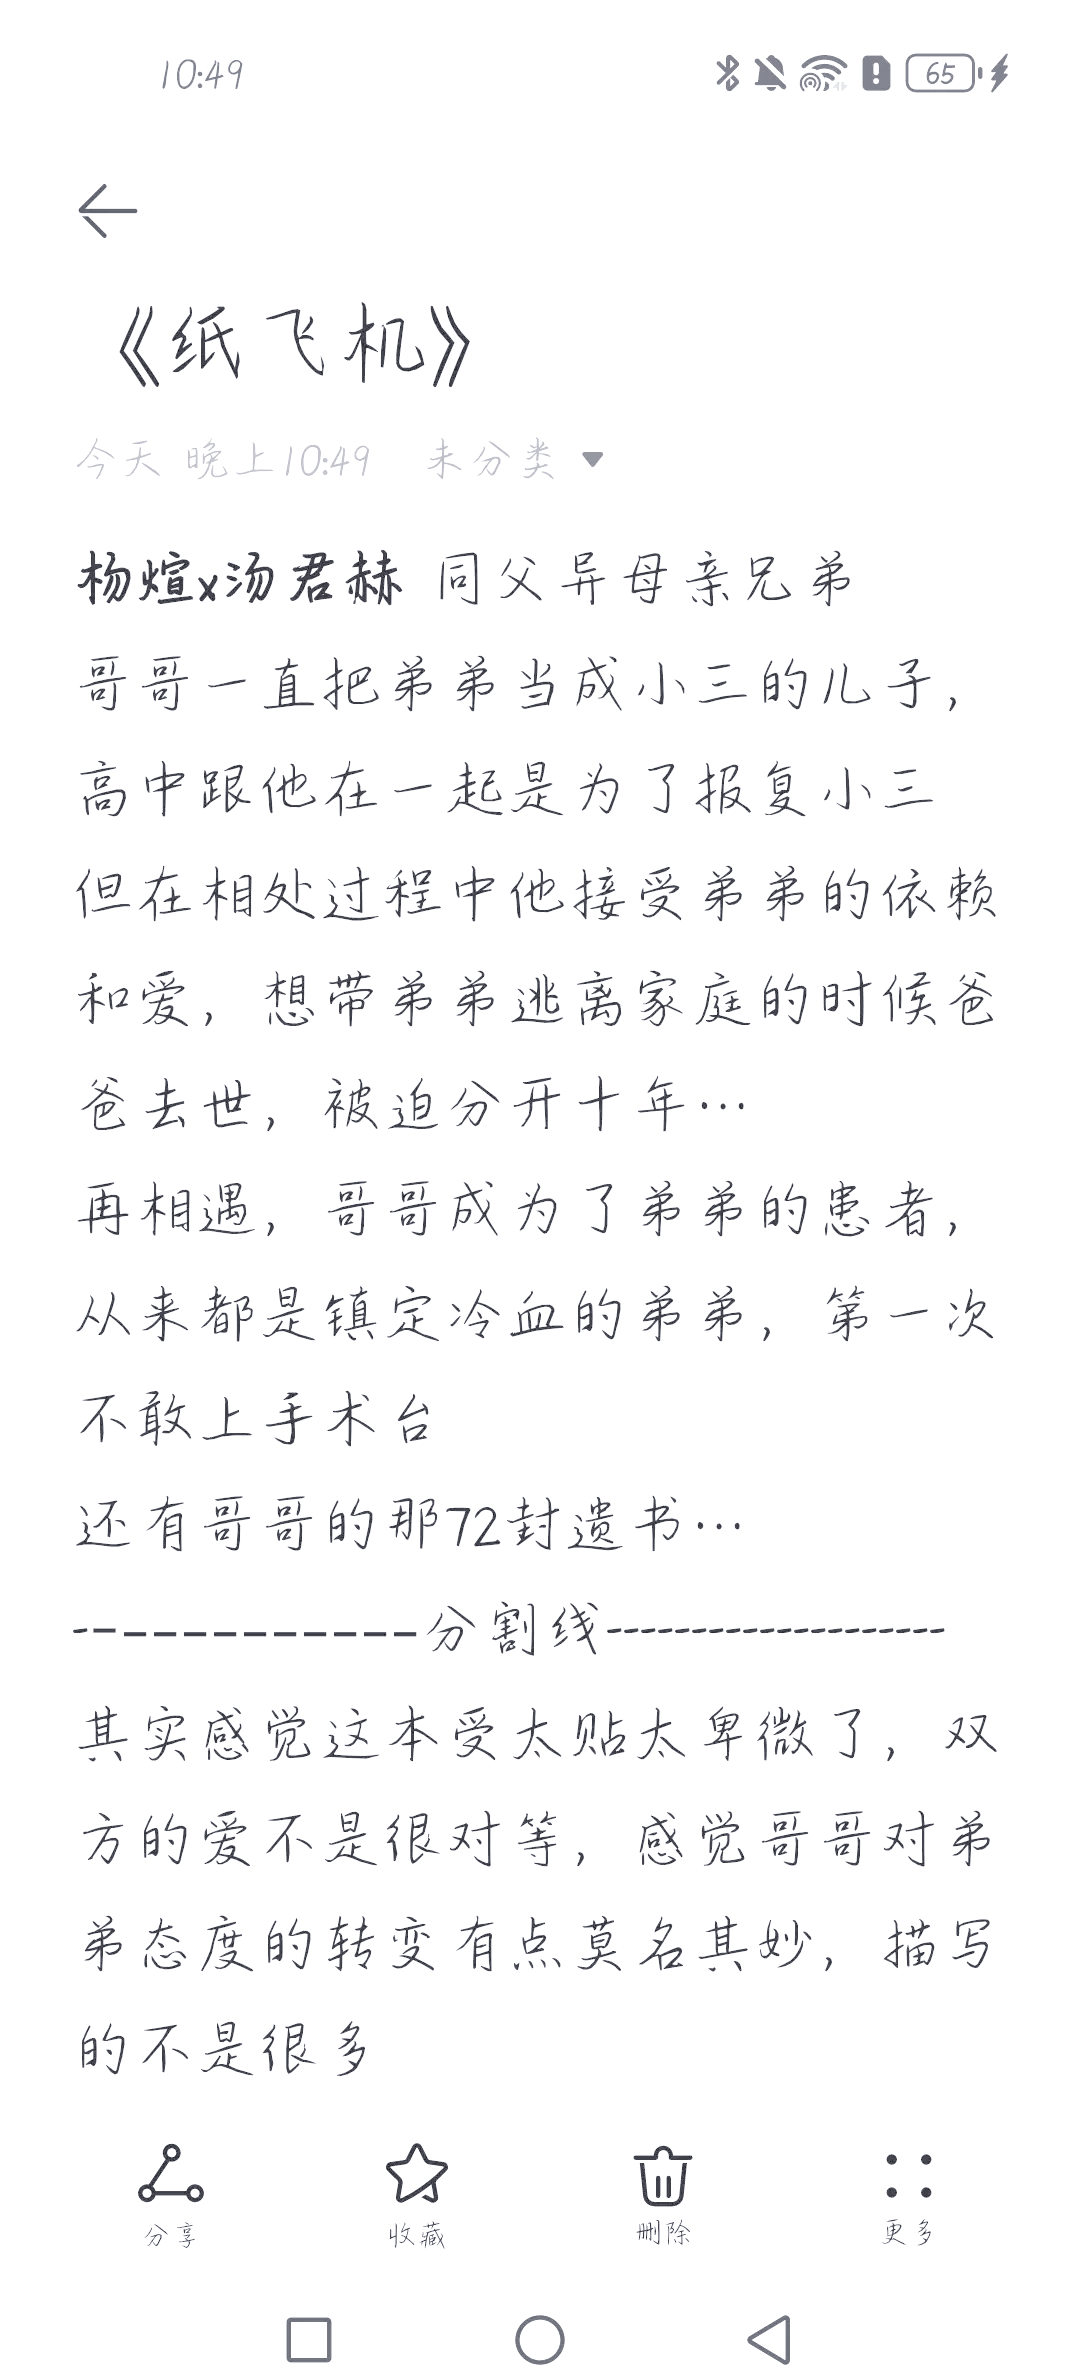 10:49
65
《纸飞机》
今天 晚上10:49 未分类
杨煊x汤君赫 同父异母亲兄弟
哥哥一直把弟弟当成小三的儿子，
高中跟他在一起是为了报复小三
但在相处过程中他接受弟弟的依赖
和爱，想带弟弟逃离家庭的时候爸
爸去世，被迫分开十年…
再相遇，哥哥成为了弟弟的患者，
从来都是镇定冷血的弟弟，第一次
不敢上手术台
还有哥哥的那72封遗书…
------------分割线--------------------
其实感觉这本受太贴太卑微了，双
方的爱不是很对等，感觉哥哥对弟
弟态度的转变有点莫名其妙，描写
的不是很多
分享 收藏 删除 更多